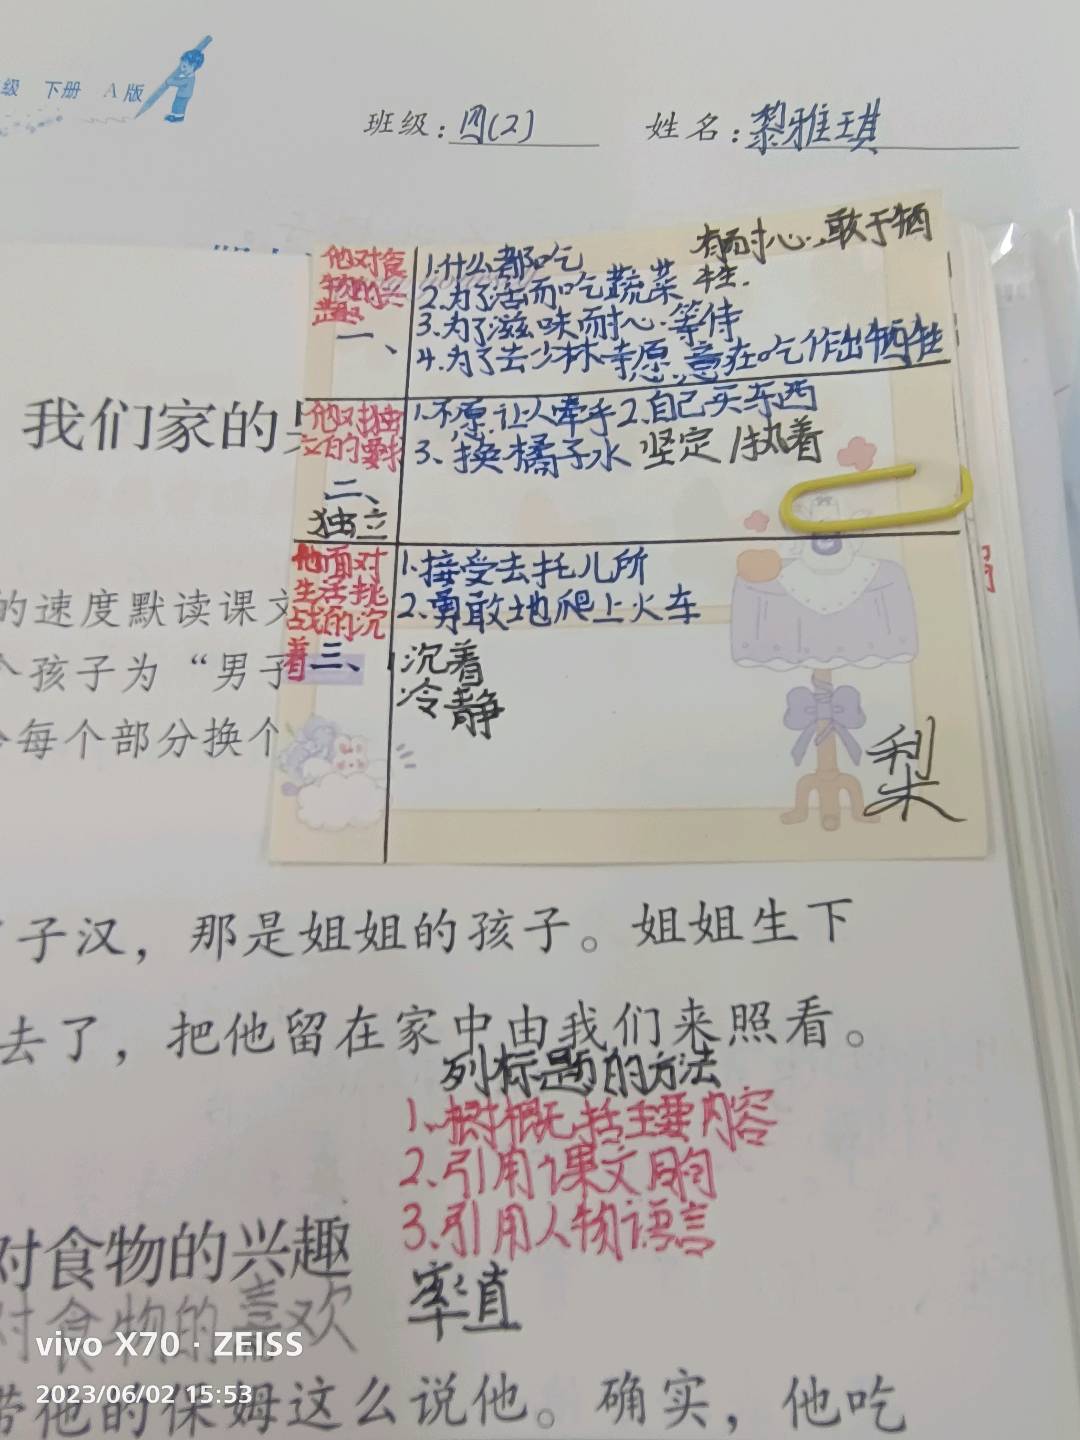 级 下册 A版
班级：四(2) 姓名：黎雅琪
他对食物的兴趣
一、
1.什么都吃
2.为了活而吃蔬菜
3.为了滋味而耐心等待
4.为了去少林寺愿意在吃作出牺牲
有耐心，敢于牺牲.
他对独立的要求
二、
独立
1.不愿让人牵手 2.自己买东西
3、换橘子水 坚定/执着
他面对生活挑战的沉着
三、
1.接受去托儿所
2.勇敢地爬上火车
沉着
冷静
梨
我们家的
的速度默读课文
个孩子为“男子
每个部分换个
子汉，那是姐姐的孩子。姐姐生下
去了，把他留在家中由我们来照看。
列标题的方法
1、概括主要内容
2.引用课文
3.引用人物语言
率直
对食物的兴趣
对食物的喜欢
带他的保姆这么说他。确实，他吃
vivo X70 · ZEISS
2023/06/02 15:53